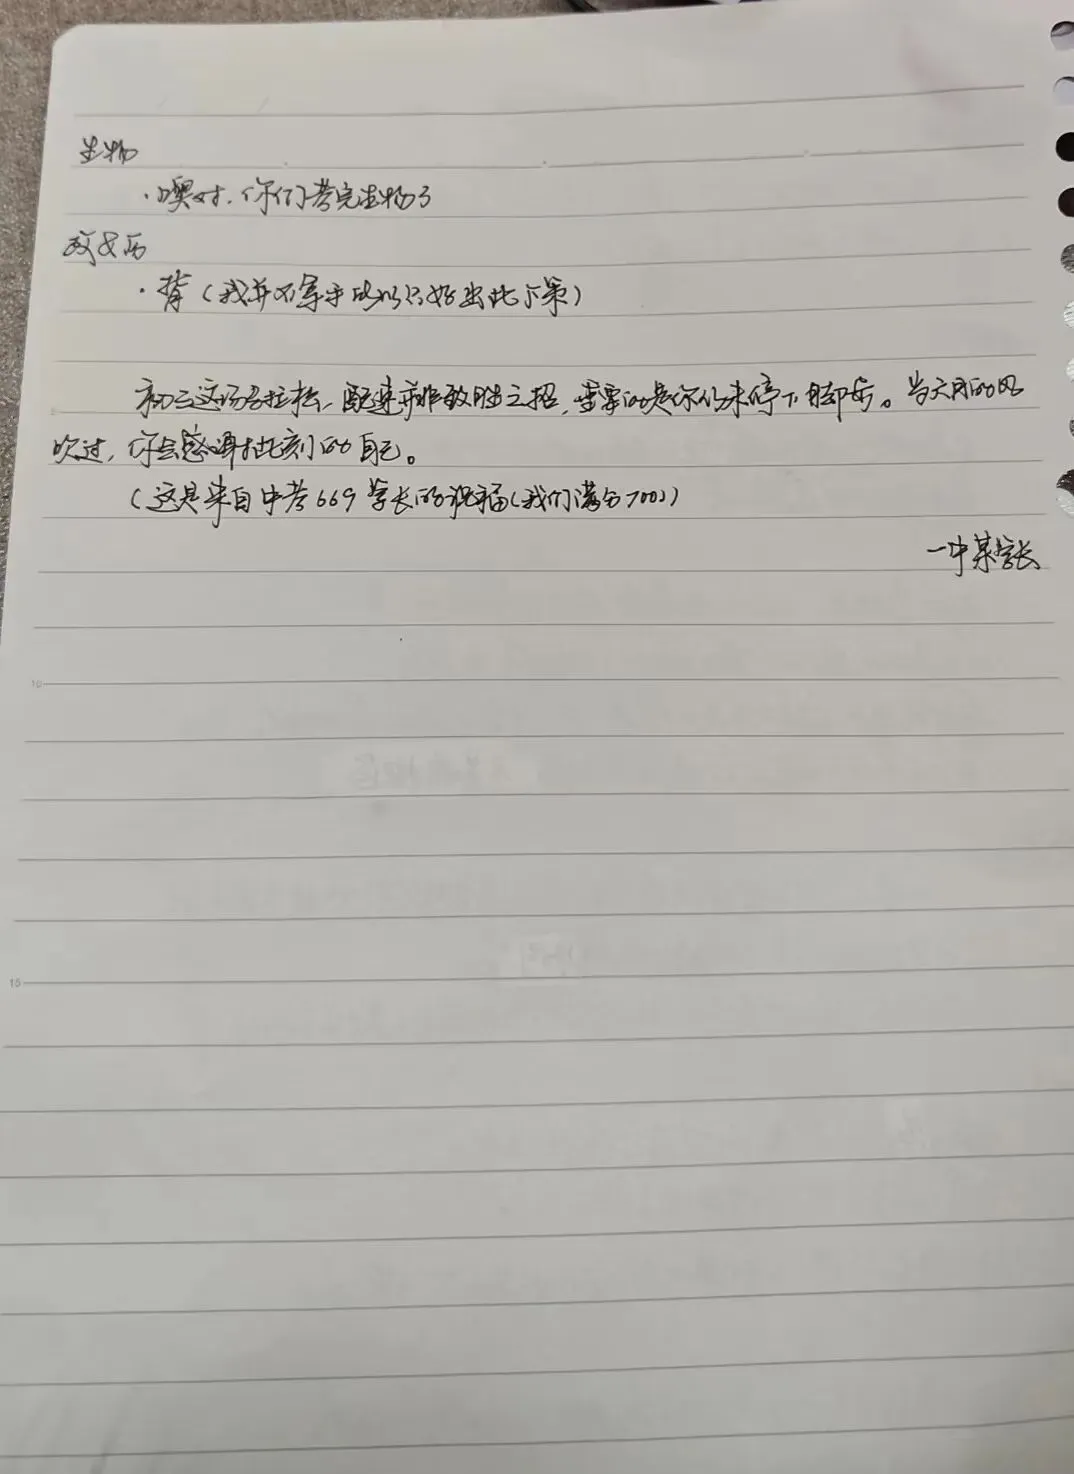 生物
·噢对,你们考完生物了
政史历
·背(我并不拿手所以只好出此下策)
初三这场马拉松,配速并非致胜之招,重要的是你从未停下脚步。当六月的风
吹过,你会感谢此刻的自己。
(这是来自中考669学长的祝福(我们满分700))
一中某学长
10
15